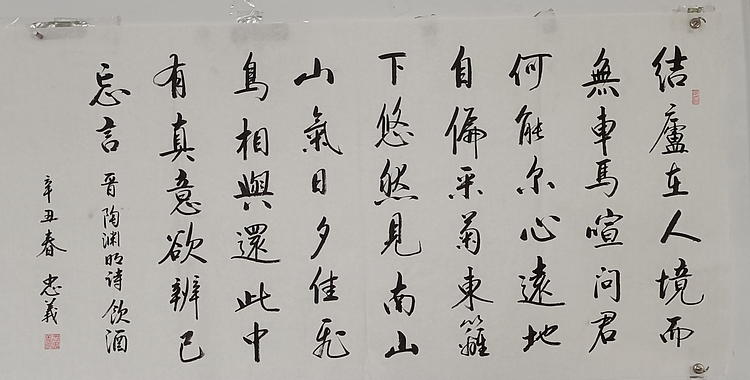 结廬在人境而
無車馬喧问君
何能尔心遠地
自偏采菊東籬
下悠然見南山
山氣日夕佳飛
鳥相與還此中
有真意欲辨已
忘言 晉陶渊明诗 饮酒
辛丑春 忠義